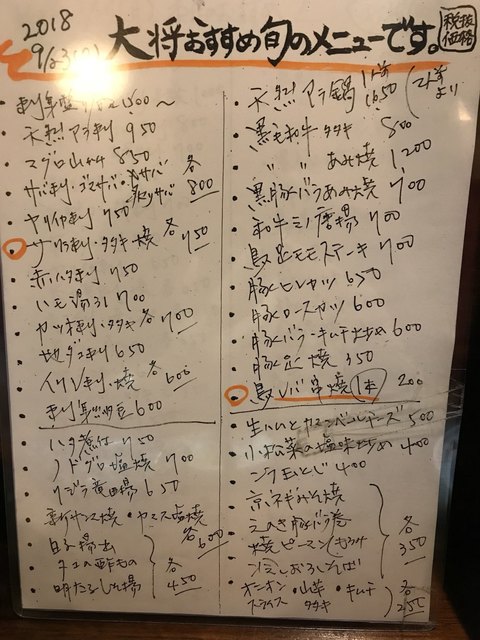 2018
9/23(日)
大将おすすめ旬のメニューです。
税抜
価格
刺身盛り
天然アラ刺 950
マグロ山かけ 850
サバ刺・ゴマサバ・〆サバ
炙りサバ 各 800
ヤリイカ刺 750
サンマ刺・タタキ・焼 各 750
赤ハタ刺 750
ハモ湯引し 700
カツオ刺・タタキ 各 700
地ダコ刺 650
イワシ刺・焼 各 600
刺身納豆 600
ハタ煮付 750
ノドグロ塩焼 700
クジラ竜田揚 650
塩焼 各 600
白子揚出
酢もの
明太しそ揚 各 450
天然アラ鍋 1人前 1650 (2人前より)
黒毛和牛タタキ 800
〃 〃 あみ焼 1200
黒豚バラあみ焼 700
和牛ミノ唐揚 700
鳥足モモステーキ 700
豚ヒレカツ 650
豚ロースカツ 600
豚バラキムチ炒め 600
豚足焼 350
鳥レバ串焼 1本 200
生ハムとカマンベールチーズ 500
小松菜の塩味炒め 400
ニラ玉とじ 400
京ネギみそ焼
えのき豚バラ巻
焼ピーマン
冷しおろしそば 各 350
オニオンスライス・山芋タタキ・キムチ 各 250